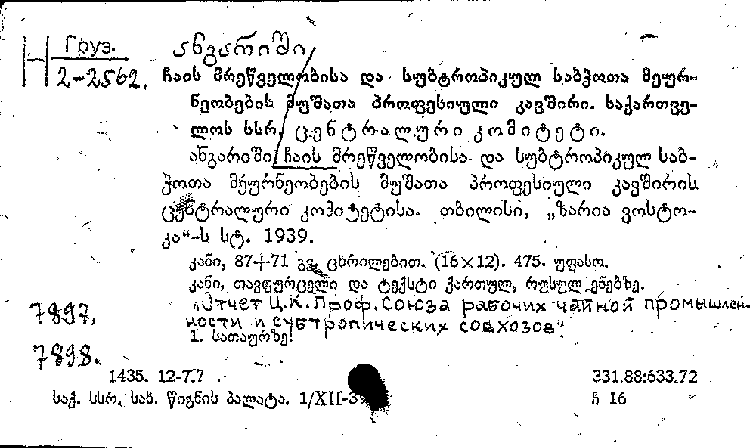 Н Груз.
2-2562.
ანგარიში
ჩაის მრეწველობისა და სუბტროპიკულ საბჭოთა მეურ-
ნეობების მუშათა პროფესიული კავშირი. საქართვე-
ლოს სსრ. ცენტრალური კომიტეტი.
ანგარიში ჩაის მრეწველობისა და სუბტროპიკულ საბ-
ჭოთა მეურნეობების მუშათა პროფესიული კავშირის
ცენტრალური კომიტეტისა. თბილისი, „ზარია ვოსტო-
კა“-ს სტ. 1939.
კანი, 87+71 გვ. ცხრილებით. (16×12). 475. უფასო.
კანი, თავფურცელი და ტექსტი ქართულ, რუსულ ენებზე.
„Отчет Ц.К. Проф. Союза рабочих чайной промышлен-
ности и субтропических совхозов“
1. სათაურზე!
7897.
7898.
1435. 12-7.7
331.88:633.72
საქ. სსრ. სახ. წიგნის პალატა. 1/XII-3
ჩ 16